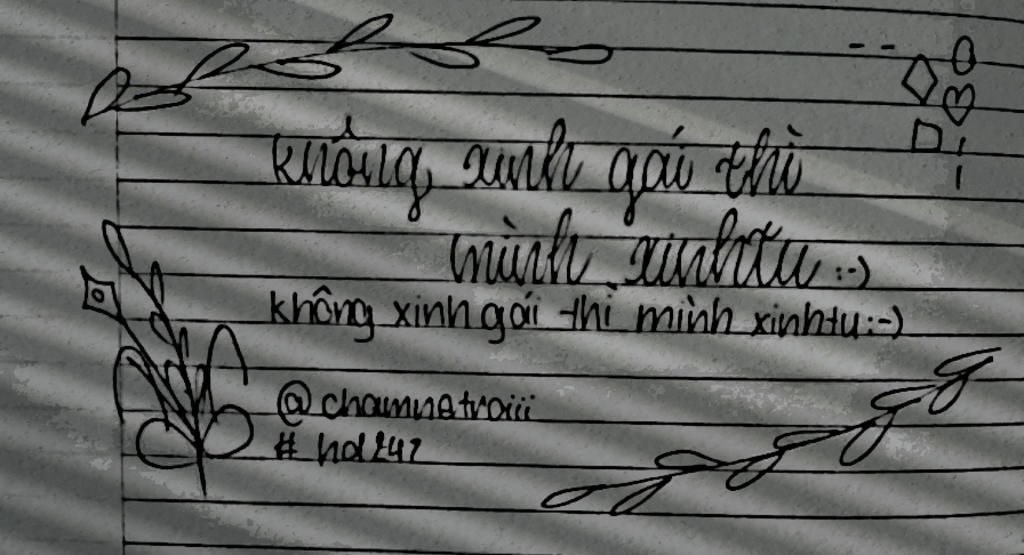 không xinh gái thì
mình xinhtu :-)
không xinh gái thì mình xinhtu :-)
@chamnetroiii
# hd247